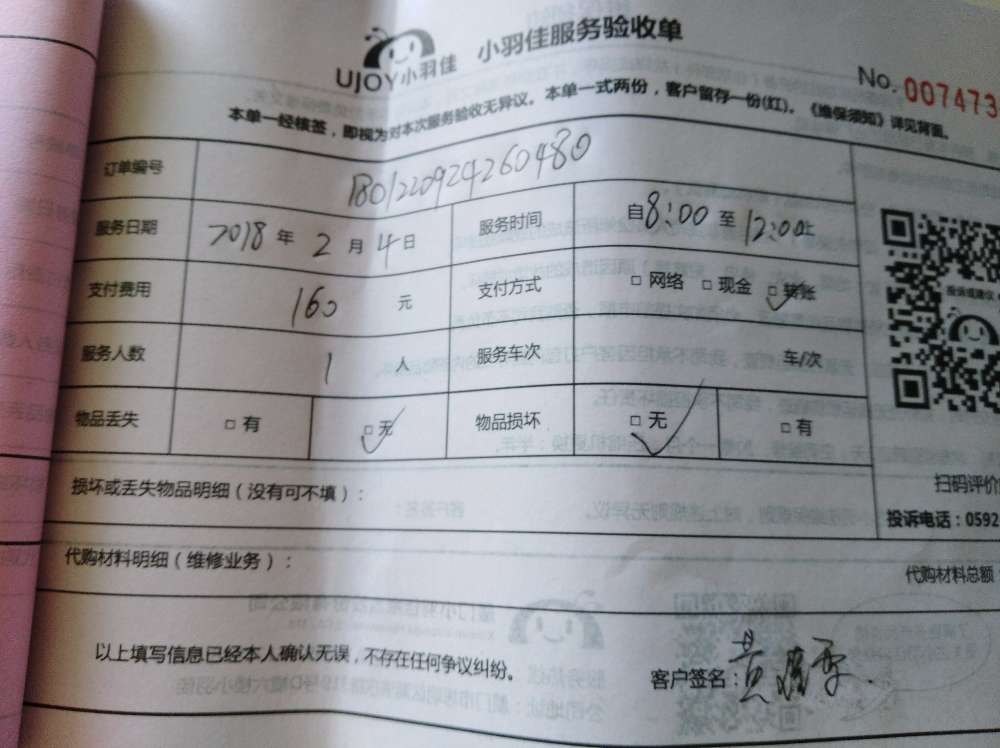 UJOY小羽佳 小羽佳服务验收单
No. 007473
本单一经核签，即视为对本次服务验收无异议。本单一式两份，客户留存一份(红)。《维保须知》详见背面。
订单编号 1801220924260480
服务日期 2018年2月4日 服务时间 自8:00至12:00止
支付费用 160元 支付方式 □网络 □现金 □转账
投诉或建议
服务人数 1人 服务车次 车/次
物品丢失 □有 □无 物品损坏 □无 □有
损坏或丢失物品明细（没有可不填）：
扫码评价
投诉电话：0592
代购材料明细（维修业务）：
代购材料总额：
以上填写信息已经本人确认无误，不存在任何争议纠纷。
客户签名：黄